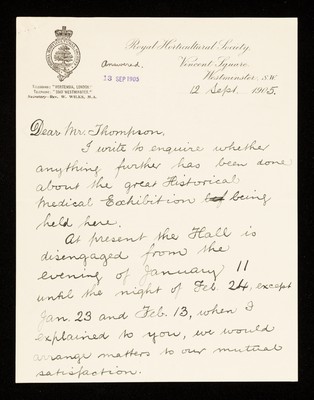 Royal Horticultural Society,
Vincent Square,
Westminster, S.W.
Answered.
13 SEP 1905
TELEGRAMS: "HORTENSIA, LONDON."
TELEPHONE: "5363 WESTMINSTER."
Secretary—Rev. W. WILKS, M.A.
12 Sept. 1905.
Dear Mr. Thompson,
I write to enquire whether
anything further has been done
about the great Historical
Medical Exhibition being
held here.
At present the Hall is
disengaged from the
evening of January 11
until the night of Feb 24, except
Jan. 23 and Feb. 13, when I
explained to you, we would
arrange matters to our mutual
satisfaction.